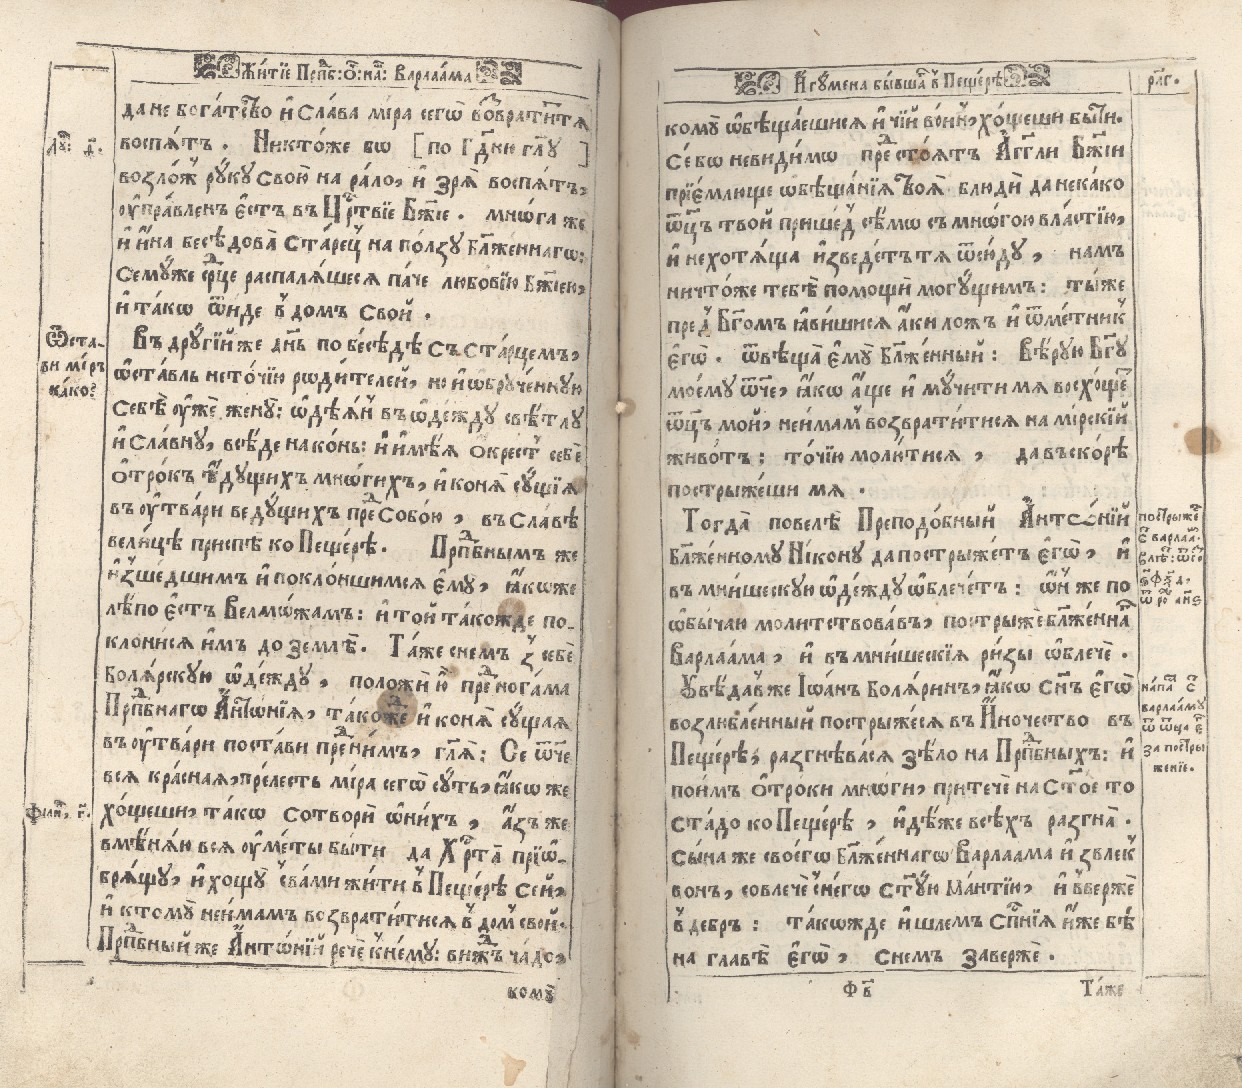 Житїе Прпⷣб: Ѻ꙼: на: Варлаама
да не бога́тство и҆ Сла́ва мі́ра сегѡ̀ возврати́ тѧ
воспѧ́ть. Никто́же бо [по Гдⷭ҇ню глⷭ҇у]
возло́ж рꙋ́кꙋ Свою̀ на ра́ло, и҆ зрѧ̀ воспѧ́ть,
ᲂу҆пра́вленъ є҆́стъ въ Црⷭ҇твїе Бж҃їе. мнѡ́га же
и҆ и҆́на бесѣ́дова Ста́рецъ на по́лзꙋ Бл҃же́ннагѡ:
Семꙋ́же Срⷣце распалѧ́шесѧ па́че любо́вїю Бж҃їею,
и҆ та́кѡ ѿи́де в̾ до́мъ Сво́й.
Въ дрꙋгі́й же дн҃ь по бесѣ́дѣ съ Ста́рцемъ,
ѡ҆ста́вль не то́чїю роди́телей, но и҆ ѡ҆брꙋче́ннꙋю
Себѣ̀ ᲂу҆жѐ женꙋ̀: ѡ҆дѣ́ѧн въ ѡ҆де́ждꙋ свѣ́тлꙋ
и҆ Сла́внꙋ, всѣ́де на ко́нь: и҆ и҆мѣ́ѧ ѻ҆́крестъ себѐ
ѻ҆́трокъ ꙗ҆́дꙋщихъ мно́гихъ, и҆ конѧ̀ сꙋ́щїѧ
въ ᲂу҆́твари ведꙋ́щихъ пре́дⷣ Собо́ю, въ Сла́вѣ
вели́цѣ приспѣ̀ ко Пеще́рѣ. Прпⷣбнымъ же
и҆зше́дшимъ и҆ покло́ншимсѧ є҆мꙋ̀, ꙗ҆́коже
лѣ́по є҆́стъ Велмо́жамъ: и҆ то́й та́кожде по-
клони́сѧ и҆̀мъ до землѐ. Та́же сне́мъ з̾ себѐ
Болѧ́рскꙋю ѡ҆де́ждꙋ, положѝ ю҆̀ преⷣ нога́ма
Прпⷣбнагѡ А҆нтѡ́нїѧ, та́коже и҆ конѧ̀ сꙋ́щаѧ
въ ᲂу҆́твари поста́ви преⷣ ни́мъ, гл҃ѧ: Се ѿче
всѧ кра́снаѧ, пре́лесть мі́ра сегѡ̀ сꙋ́ть, ꙗ҆́коже
хо́щеши, та́кѡ сотворѝ ѡ҆ ни́хъ, а҆́зъ же
вмѣнѧ́ѧ всѧ ᲂу҆ме́ты бы́ти да Хрⷭ҇та̀ прїѡб-
рѧ́щꙋ, и҆ хощꙋ̀ с̾ва́ми жи́ти в̾ Пеще́рѣ Се́й,
и҆ ктомꙋ̀ не и҆́мамъ возврати́тисѧ в̾ до́мъ сво́й.
Прпⷣбный же А҆нтѡ́нїй речѐ к̾ немꙋ̀: ви́ждь ча́до,
комꙋ̀
Лꙋ: д҃.
Ѡста-
ви мі́ръ
ка́ко?
Фили, г҃.
И҆гꙋ́мена бы́вша в̾ Пеще́рѣ
рл҃г.
комꙋ̀ ѡ҆бѣща́ешисѧ и҆ чїй во́инъ хо́щеши бы́ти.
Се́ бо неви́димѡ преⷣстоѧ́тъ А҆́гг҃ли Бж҃їи
прїе́млюще ѡ҆бѣща́нїѧ Твоѧ̀ блюдѝ да не ка́ко
ѿц҃ъ тво́й прише́дъ сѣ́мѡ съ мно́гою вла́стїю,
и҆ не хотѧ́ща и҆зведе́тъ тѧ ѿсю́дꙋ, на́мъ
ничто́же тебѣ̀ помощѝ могꙋ́щимъ: ты́ же
пред Бг҃омъ ꙗ҆ви́шисѧ а҆́ки ло́жъ и҆ ѿме́тник
є҆гѡ̀. ѿвѣща̀ є҆мꙋ̀ Бл҃же́нный: Вѣ́рꙋю Бг҃ꙋ
моемꙋ̀ ѿче, ꙗ҆́кѡ а҆́ще и҆ мꙋ́чити мѧ восхо́щеⷮ
ѿц҃ъ мо́й, не и҆́мамъ возврати́тисѧ на мі́рскїй
живо́тъ: то́чїю моли́тисѧ, да въскорѣ
постриже́ши мѧ.
Тогда̀ повелѣ̀ Преподо́бный А҆нто́нїй
бл҃же́нномꙋ Ні́конꙋ да постриже́тъ є҆гѡ̀, и҆
въ мни́шескꙋю ѡ҆де́ждꙋ ѡ҆блече́тъ: ѡ҆́н же по
ѡ҆бы́чаю моли́твствовавъ, пострижѐ бл҃же́нна
Варлаа́ма, и҆ въ мни́шескїѧ ри́зы ѡ҆блечѐ.
Оу҆вѣ́давже І҆ѡа́нъ Болѧ́ринъ, ꙗ҆́кѡ сн҃ъ є҆гѡ̀
возлю́бленный постриже́сѧ въ И҆́ночество въ
Пеще́рѣ, разгнѣ́васѧ зѣ́ло на Прпⷣбныхъ: и҆
пои́мъ ѻ҆́троки мно́ги, притечѐ на Ст҃о́е то
Ста́до ко Пеще́рѣ, и҆дѣ́же всѣ́хъ разгна̀.
Сы́на же своегѡ̀ Бл҃же́ннагѡ Варлаа́ма и҆звлек
во́нъ, совлечѐ с̾негѡ̀ ст҃ꙋ́ю Ма́нтїю, и҆ вве́рже
в̾ де́бръ: та́кожде и҆ шле́мъ Сп҃нїѧ и҆́же бѣ̀
на главѣ̀ є҆гѡ̀, Сне́мъ заве́рже.
Фв҃
Та́же
постриже́
Варлаа́-
напа́
Варлаа́мꙋ
за постры
же́нїе.